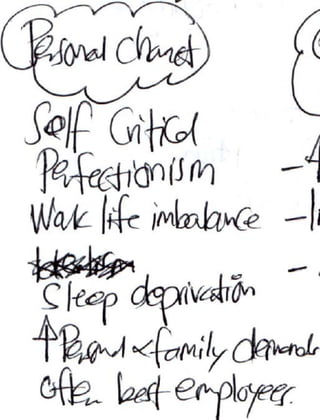 Personal Charact
Self Critical
Perfectionism
Work life imbalance
Sleep deprivation
↑ Personal & family demands
often best employees.